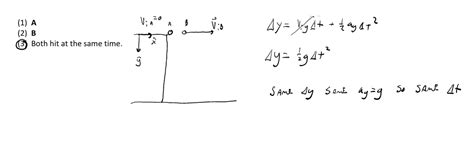 (1) A
(2) B
(3) Both hit at the same time.
V⃗iA=0 A B V⃗iB
x
g
Δy = Viy Δt + ½ ay Δt²
Δy = ½ g Δt²
SAME Δy SAME ay=g SO SAME Δt